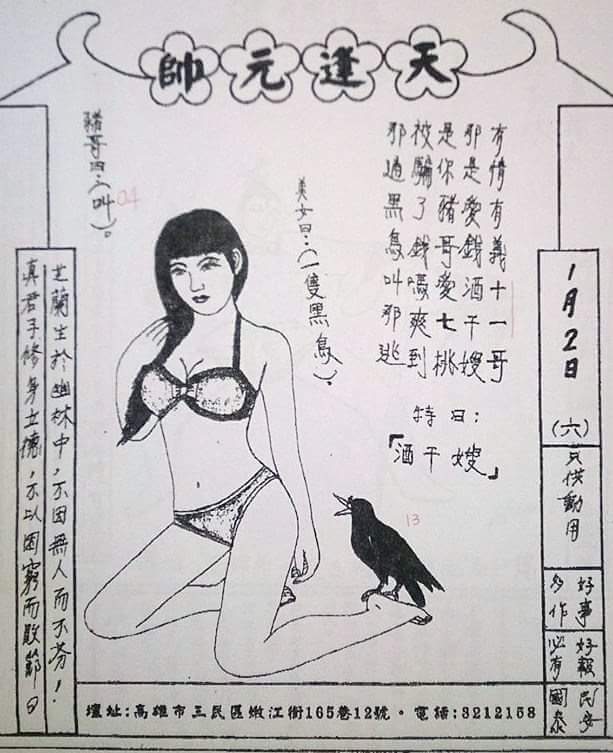 天逢元帥
有情有義十一哥
那是愛錢酒干嫂
是你豬哥愛七桃
被騙了錢嗝爽到
那過黑鳥叫那逃
特曰:
「酒干嫂」
美女曰:(一隻黑鳥)。
豬哥曰:(叫)。
04
13
1月2日
(六)
只供動用
好事
多作
好報
必有
民安
國泰
芝蘭生於幽林中,不因無人而不芬!
真君子修身立德,不以困窮而敗節曰
壇址:高雄市三民區嫩江街165巷12號。電話:3212158